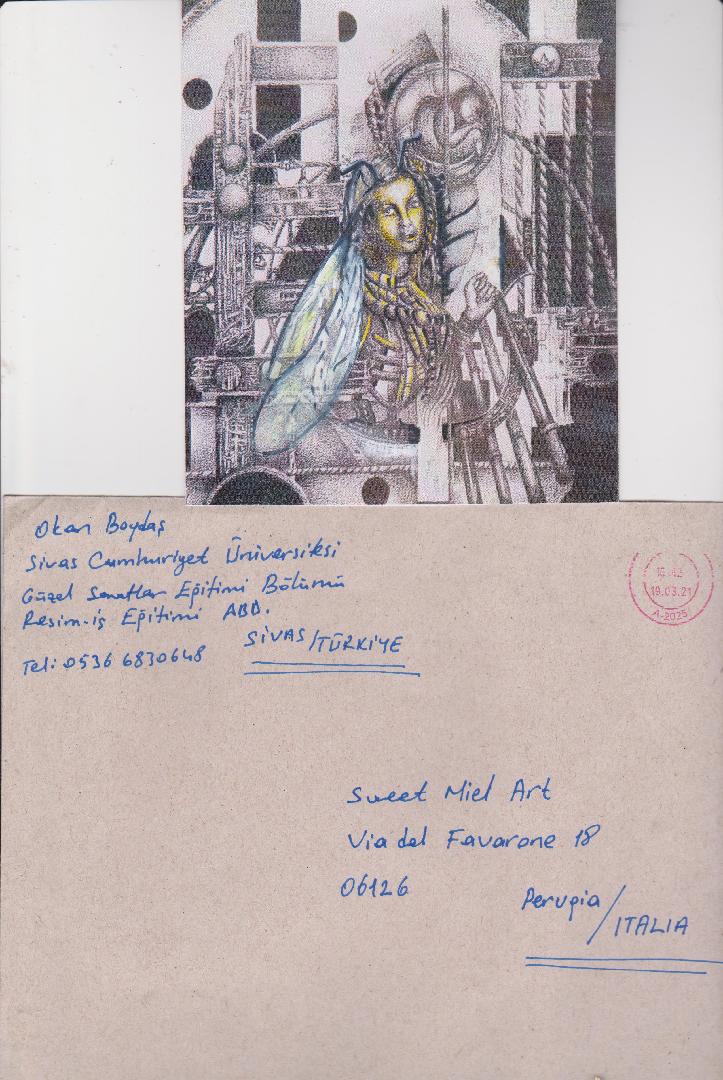 Okan Boydaş
Sivas Cumhuriyet Üniversitesi
Güzel Sanatlar Eğitimi Bölümü
Resim-iş Eğitimi ABD.
SİVAS/TÜRKİYE
Tel: 0536 6830648
19.03.21
A-2025
Sweet Miel Art
Via del Favarone 18
06126
Perugia/ITALIA